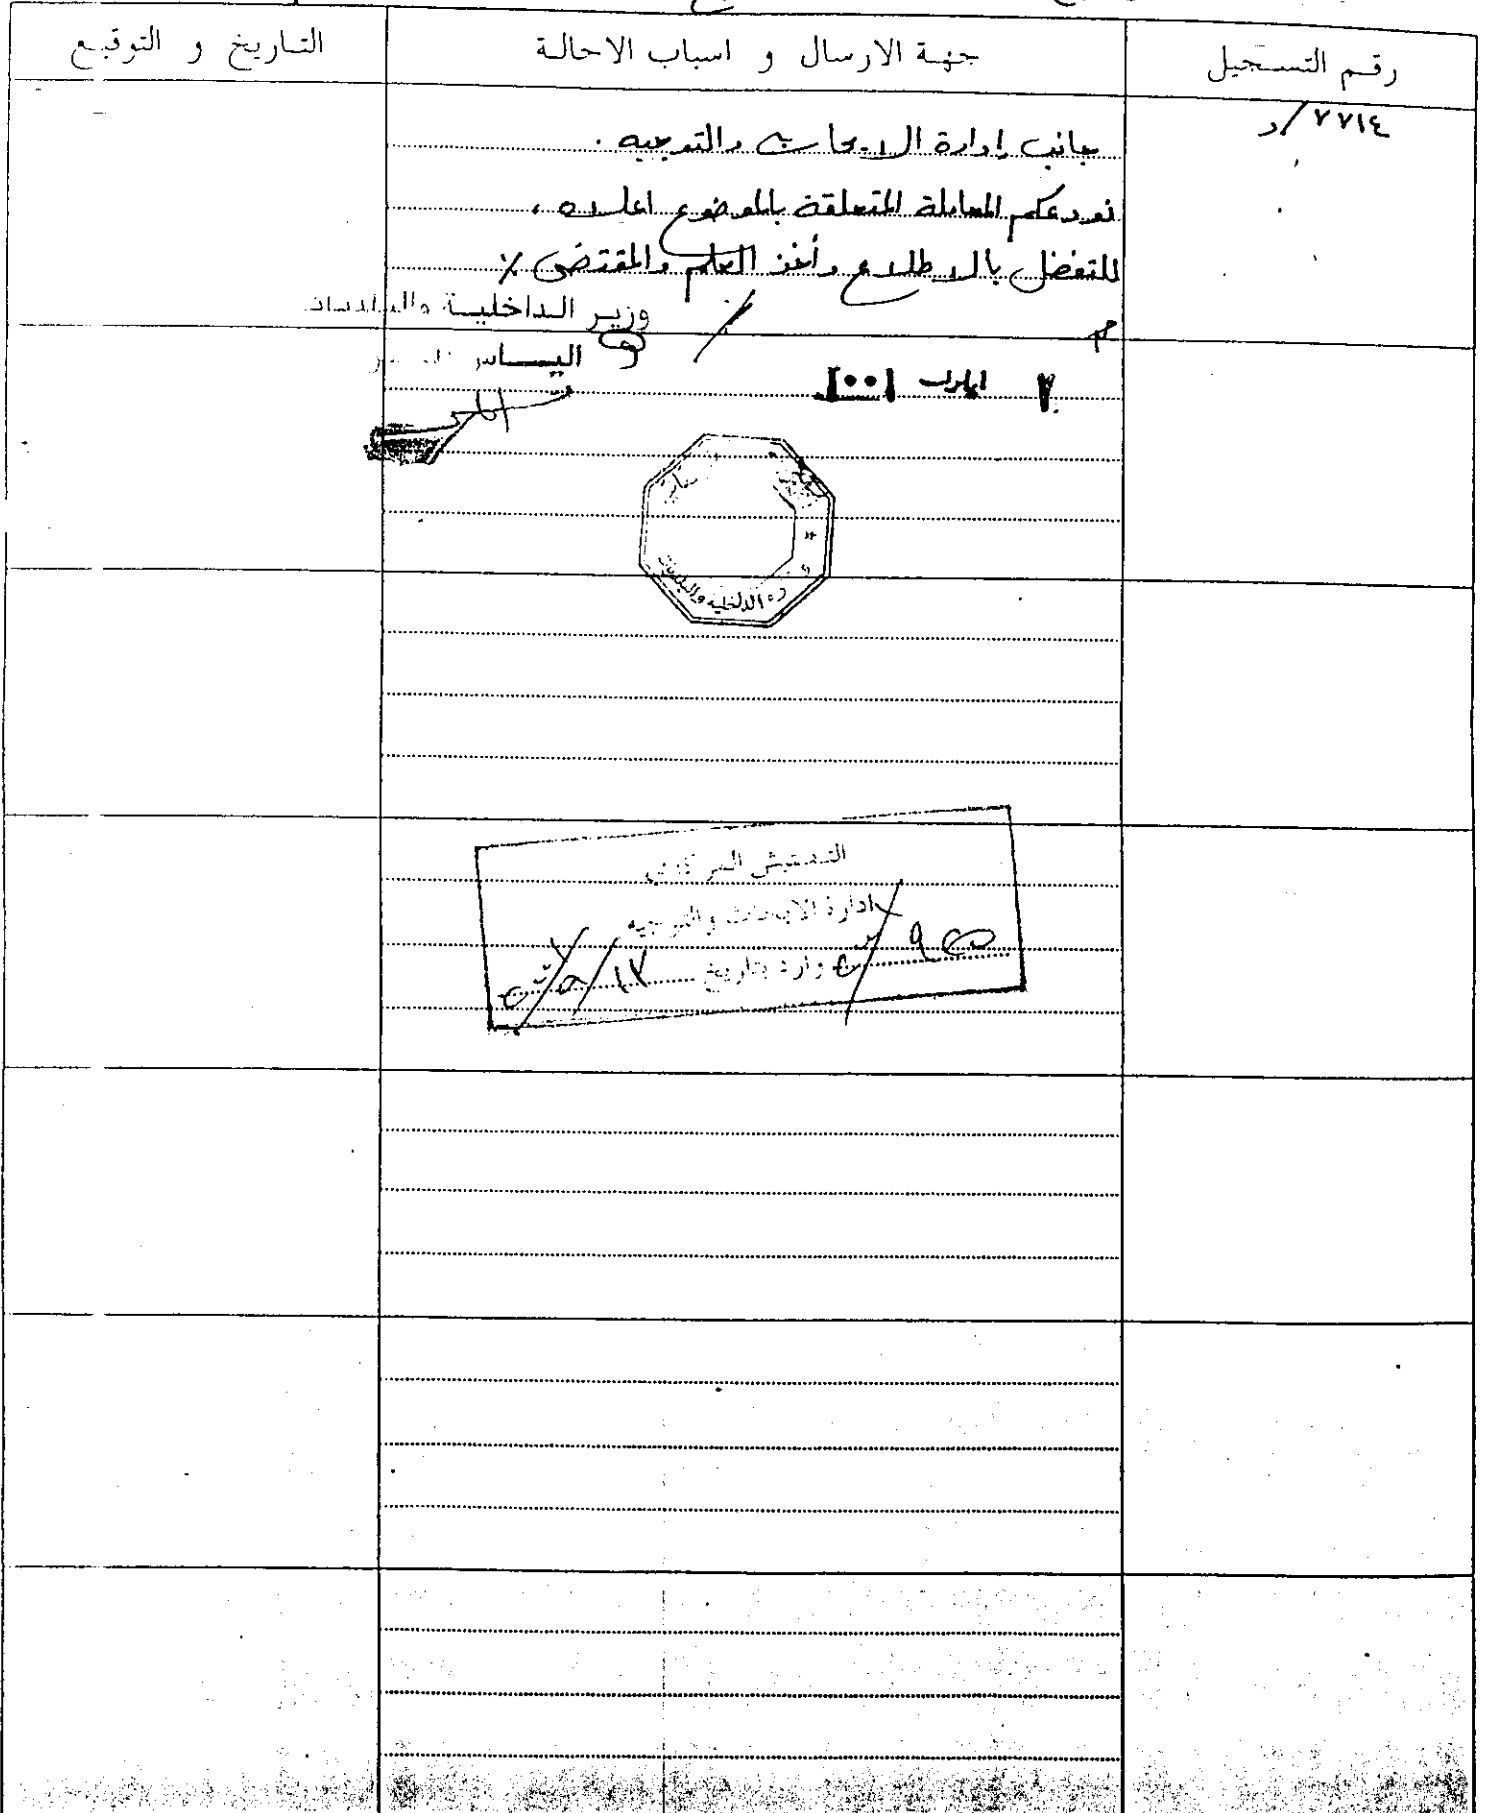 رقم التسجيل
جهة الارسال و اسباب الاحالة
التاريخ و التوقيع
٧٧١٤/د
جانب إدارة الابحاث والتوجيه .
نودعكم المعاملة المتعلقة بالموضوع اعلاه ،
للتفضل بالاطلاع وأخذ العلم والمقتضى ٪
وزير الداخلية والبلديات
الياس
ايلول
وزارة الداخلية والبلديات
التفتيش المركزي
ادارة الابحاث والتوجيه
وارد بتاريخ